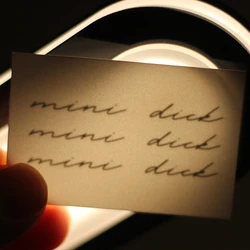 mini dick
mini dick
mini dick